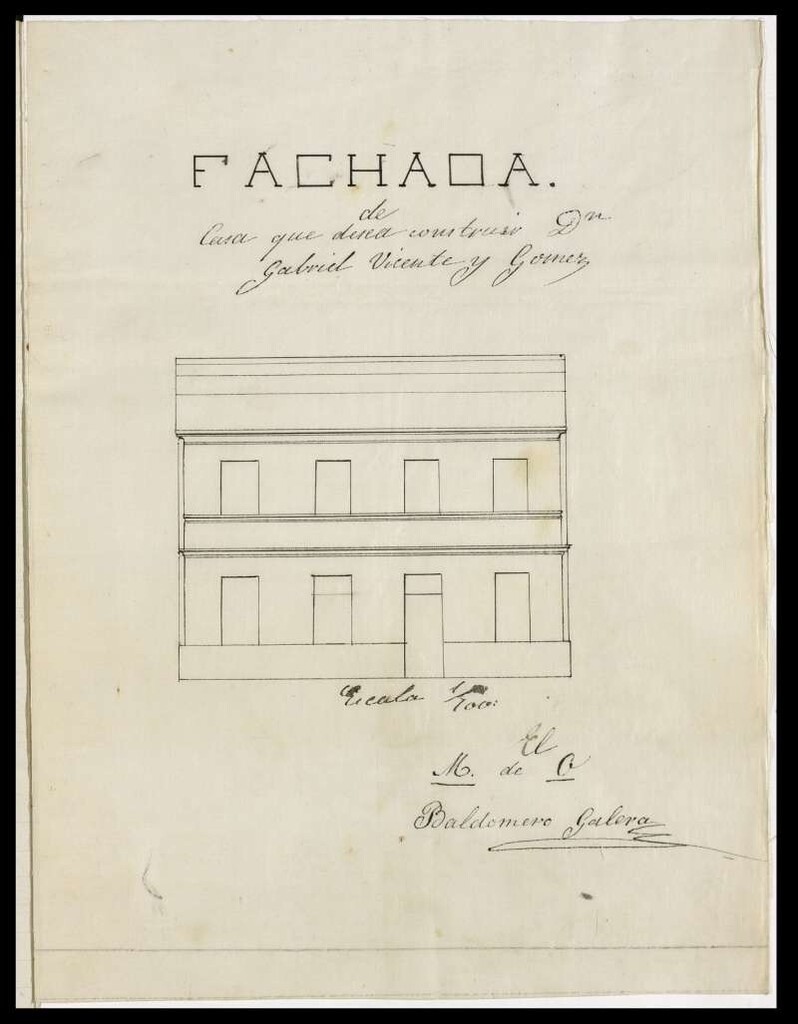 FACHADA.
de
Casa que desea construir Dⁿ
Gabriel Vicente y Gomez
Escala 1/100:
El
M. de O
Baldomero Galera